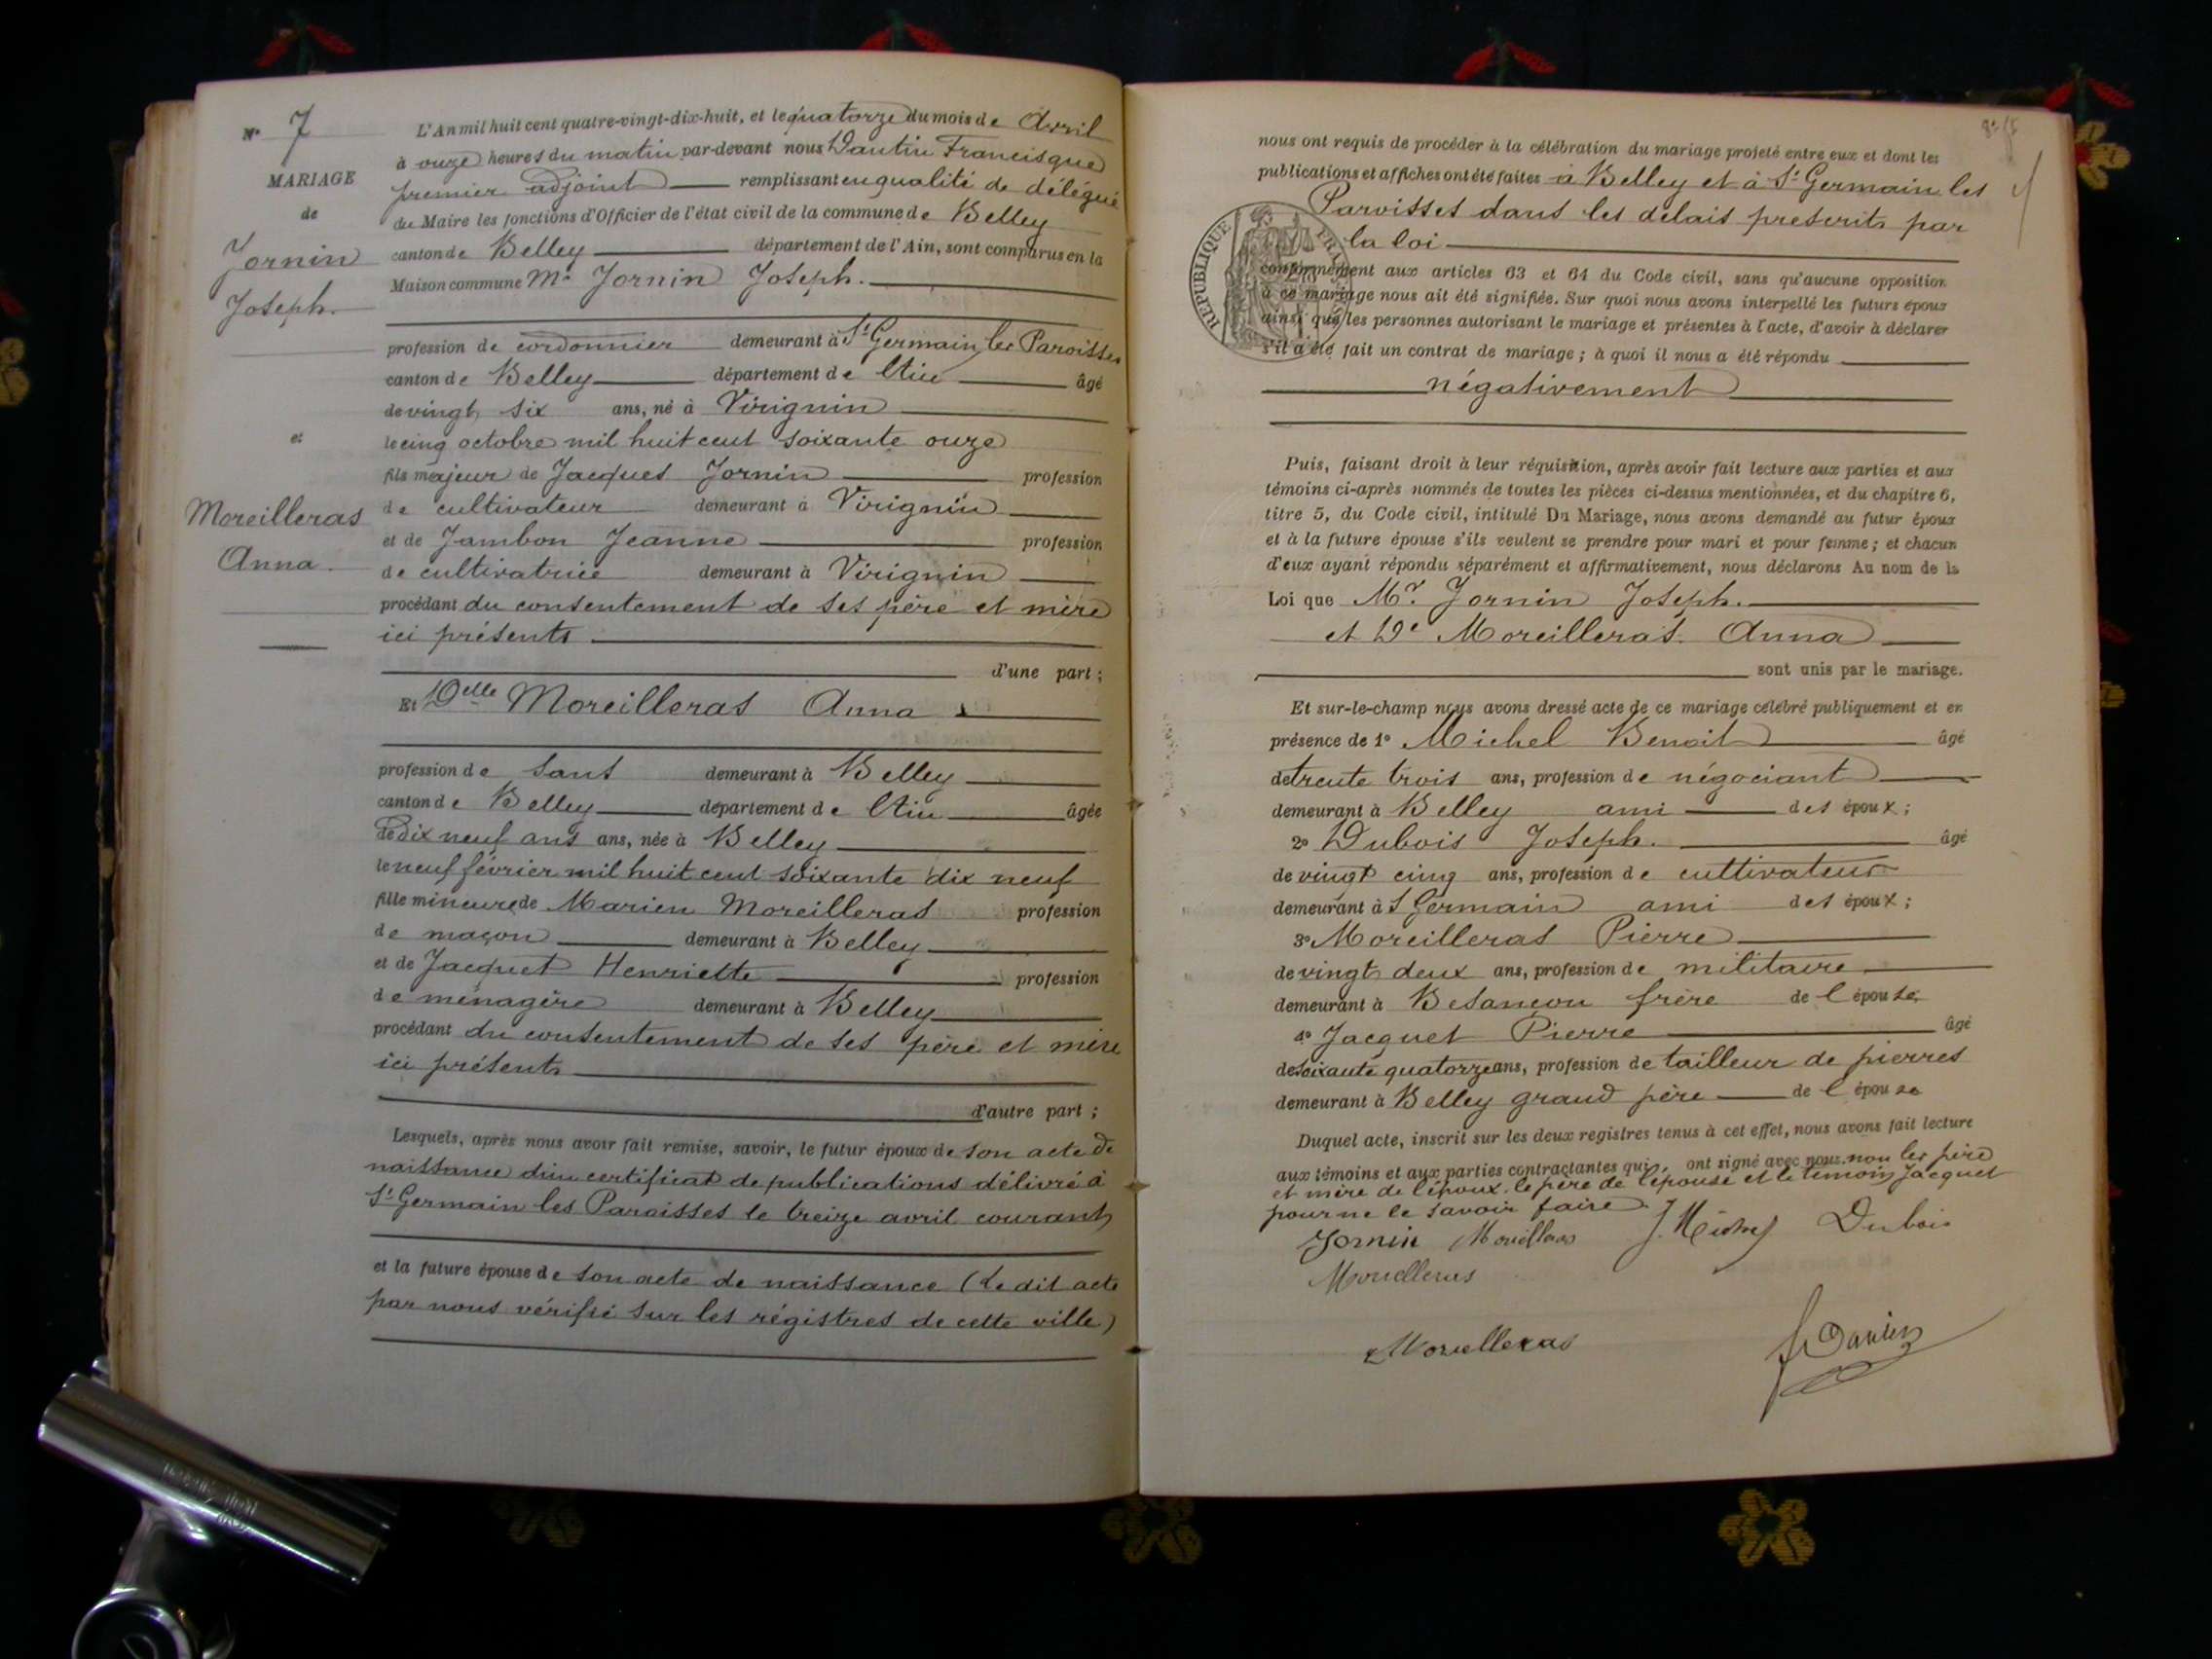 N° 7
MARIAGE
de
Jornin
Joseph.
et
Moreilleras
Anna.
L'An mil huit cent quatre-vingt-dix-huit, et le quatorze du mois de Avril
à onze heures du matin par-devant nous Dantin Francisque
premier adjoint remplissant en qualité de délégué
du Maire les fonctions d'Officier de l'état civil de la commune de Belley
canton de Belley département de l'Ain, sont comparus en la
Maison commune Mr Jornin Joseph.
profession de cordonnier demeurant à St Germain les Paroisses
canton de Belley département de l'Ain âgé
de vingt six ans, né à Virignin
le cinq octobre mil huit cent soixante onze
fils majeur de Jacques Jornin profession
de cultivateur demeurant à Virignin
et de Jambon Jeanne profession
de cultivatrice demeurant à Virignin
procédant du consentement de ses père et mère
ici présents
d'une part ;
Et Delle Moreilleras Anna
profession de sans demeurant à Belley
canton de Belley département de l'Ain âgée
de dix neuf ans ans, née à Belley
le neuf février mil huit cent soixante dix neuf
fille mineure de Marien Moreilleras profession
de maçon demeurant à Belley
et de Jacquet Henriette profession
de ménagère demeurant à Belley
procédant du consentement de ses père et mère
ici présents
d'autre part ;
Lesquels, après nous avoir fait remise, savoir, le futur époux de son acte de
naissance d'un certificat de publications délivré à
St Germain les Paroisses le treize avril courant
et la future épouse de son acte de naissance (Le dit acte
par nous vérifié sur les régistres de cette ville)
nous ont requis de procéder à la célébration du mariage projeté entre eux et dont les
publications et affiches ont été faites à Belley et à St Germain les
Paroisses dans les délais prescrits par
la loi
RÉPUBLIQUE FRANÇAISE
conformément aux articles 63 et 64 du Code civil, sans qu'aucune opposition
à ce mariage nous ait été signifiée. Sur quoi nous avons interpellé les futurs époux
ainsi que les personnes autorisant le mariage et présentes à l'acte, d'avoir à déclarer
s'il a été fait un contrat de mariage ; à quoi il nous a été répondu
négativement
Puis, faisant droit à leur réquisition, après avoir fait lecture aux parties et aux
témoins ci-après nommés de toutes les pièces ci-dessus mentionnées, et du chapitre 6,
titre 5, du Code civil, intitulé Du Mariage, nous avons demandé au futur époux
et à la future épouse s'ils veulent se prendre pour mari et pour femme ; et chacun
d'eux ayant répondu séparément et affirmativement, nous déclarons Au nom de la
Loi que Mr. Jornin Joseph.
et De Moreilleras Anna
sont unis par le mariage.
Et sur-le-champ nous avons dressé acte de ce mariage célébré publiquement et en
présence de 1° Michel Benoit âgé
de trente trois ans, profession de négociant
demeurant à Belley ami des époux ;
2° Dubois Joseph. âgé
de vingt cinq ans, profession de cultivateur
demeurant à St Germain ami des époux ;
3° Moreilleras Pierre
de vingt deux ans, profession de militaire
demeurant à Besançon frère de l'épouse
4° Jacquet Pierre âgé
de soixante quatorze ans, profession de tailleur de pierres
demeurant à Belley grand père de l'épouse
Duquel acte, inscrit sur les deux registres tenus à cet effet, nous avons fait lecture
aux témoins et aux parties contractantes qui ont signé avec nous. non les père
et mère de l'époux. le père de l'épouse et le témoin Jacquet
pour ne le savoir faire.
Jornin Moreilleras J. Michel Dubois
Moreilleras
Moreilleras
Dantin